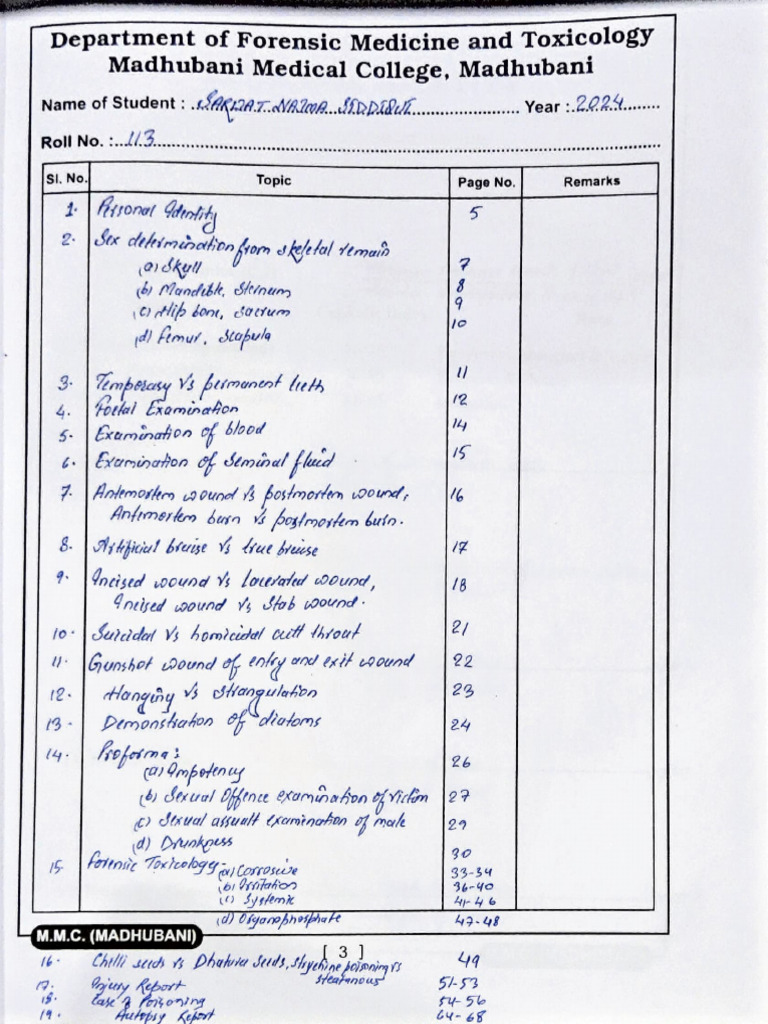 Department of Forensic Medicine and Toxicology
Madhubani Medical College, Madhubani
Name of Student : NAZMA Year : 2024
Roll No. : 113
Sl. No. Topic Page No. Remarks
1. Personal Identity 5
2. Sex determination from skeletal remain
(a) Skull 7
(b) Mandible, Sternum 8
(c) Hip bone, Sacrum 9
(d) Femur, Scapula 10
3. Temporary Vs permanent teeth 11
4. Foetal Examination 12
5. Examination of blood 14
6. Examination of Seminal fluid 15
7. Antemortem wound Vs postmortem wound, 16
Antemortem burn Vs postmortem burn.
8. Artificial bruise Vs true bruise 17
9. Incised wound Vs Lacerated wound, 18
Incised wound Vs Stab wound.
10. Suicidal Vs homicidal cutt throut 21
11. Gunshot wound of entry and exit wound 22
12. Hanging Vs Strangulation 23
13. Demonstration of diatoms 24
14. Proforma:
(a) Impotency 26
(b) Sexual Offence examination of Victim 27
(c) Sexual assualt examination of male 29
(d) Drunkness 30
15. Forensic Toxicology- (a) Corrosive 33-34
(b) Irritation 36-40
(c) Systemic 41-46
(d) Organophosphate 47-48
M.M.C. (MADHUBANI)
[ 3 ]
16. Chilli seeds vs Dhatura seeds, poisoning vs 49
17. Injury Report 51-53
18. Case of Poisoning 54-56
19. Autopsy Report 64-68